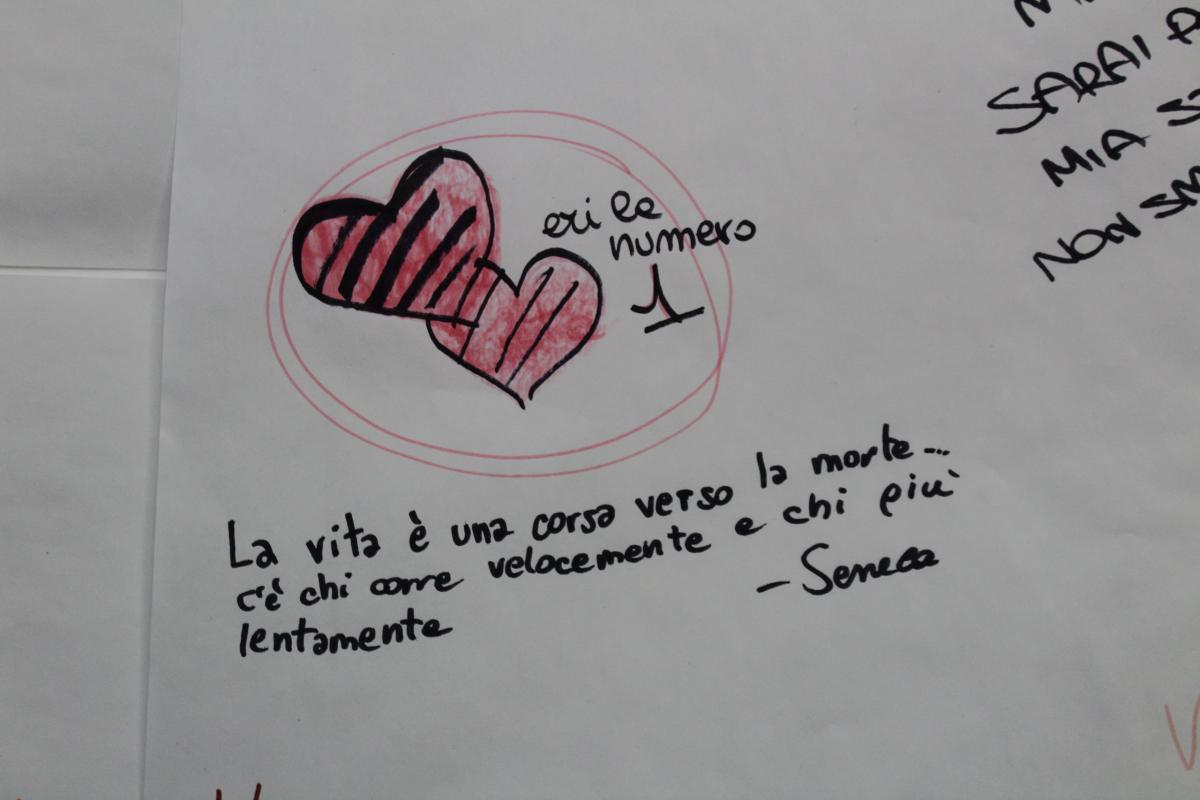 eri la
numero
1
La vita è una corsa verso la morte...
c'è chi corre velocemente e chi più
lentamente
- Seneca
SARAI
MIA
NON